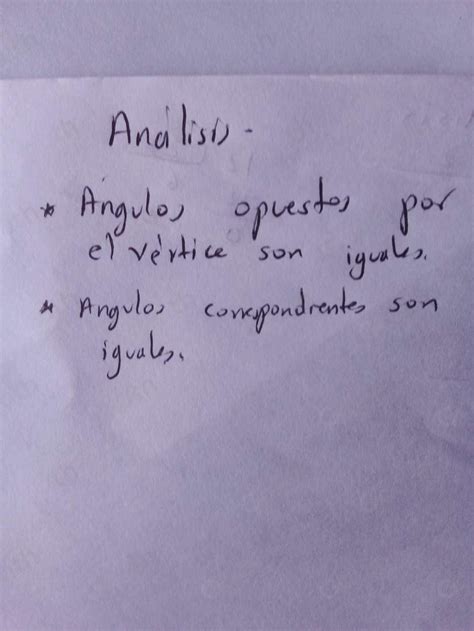 Análisis -
* Ángulos opuestos por
el vértice son iguales.
* Angulos correspondrentes son
iguales.